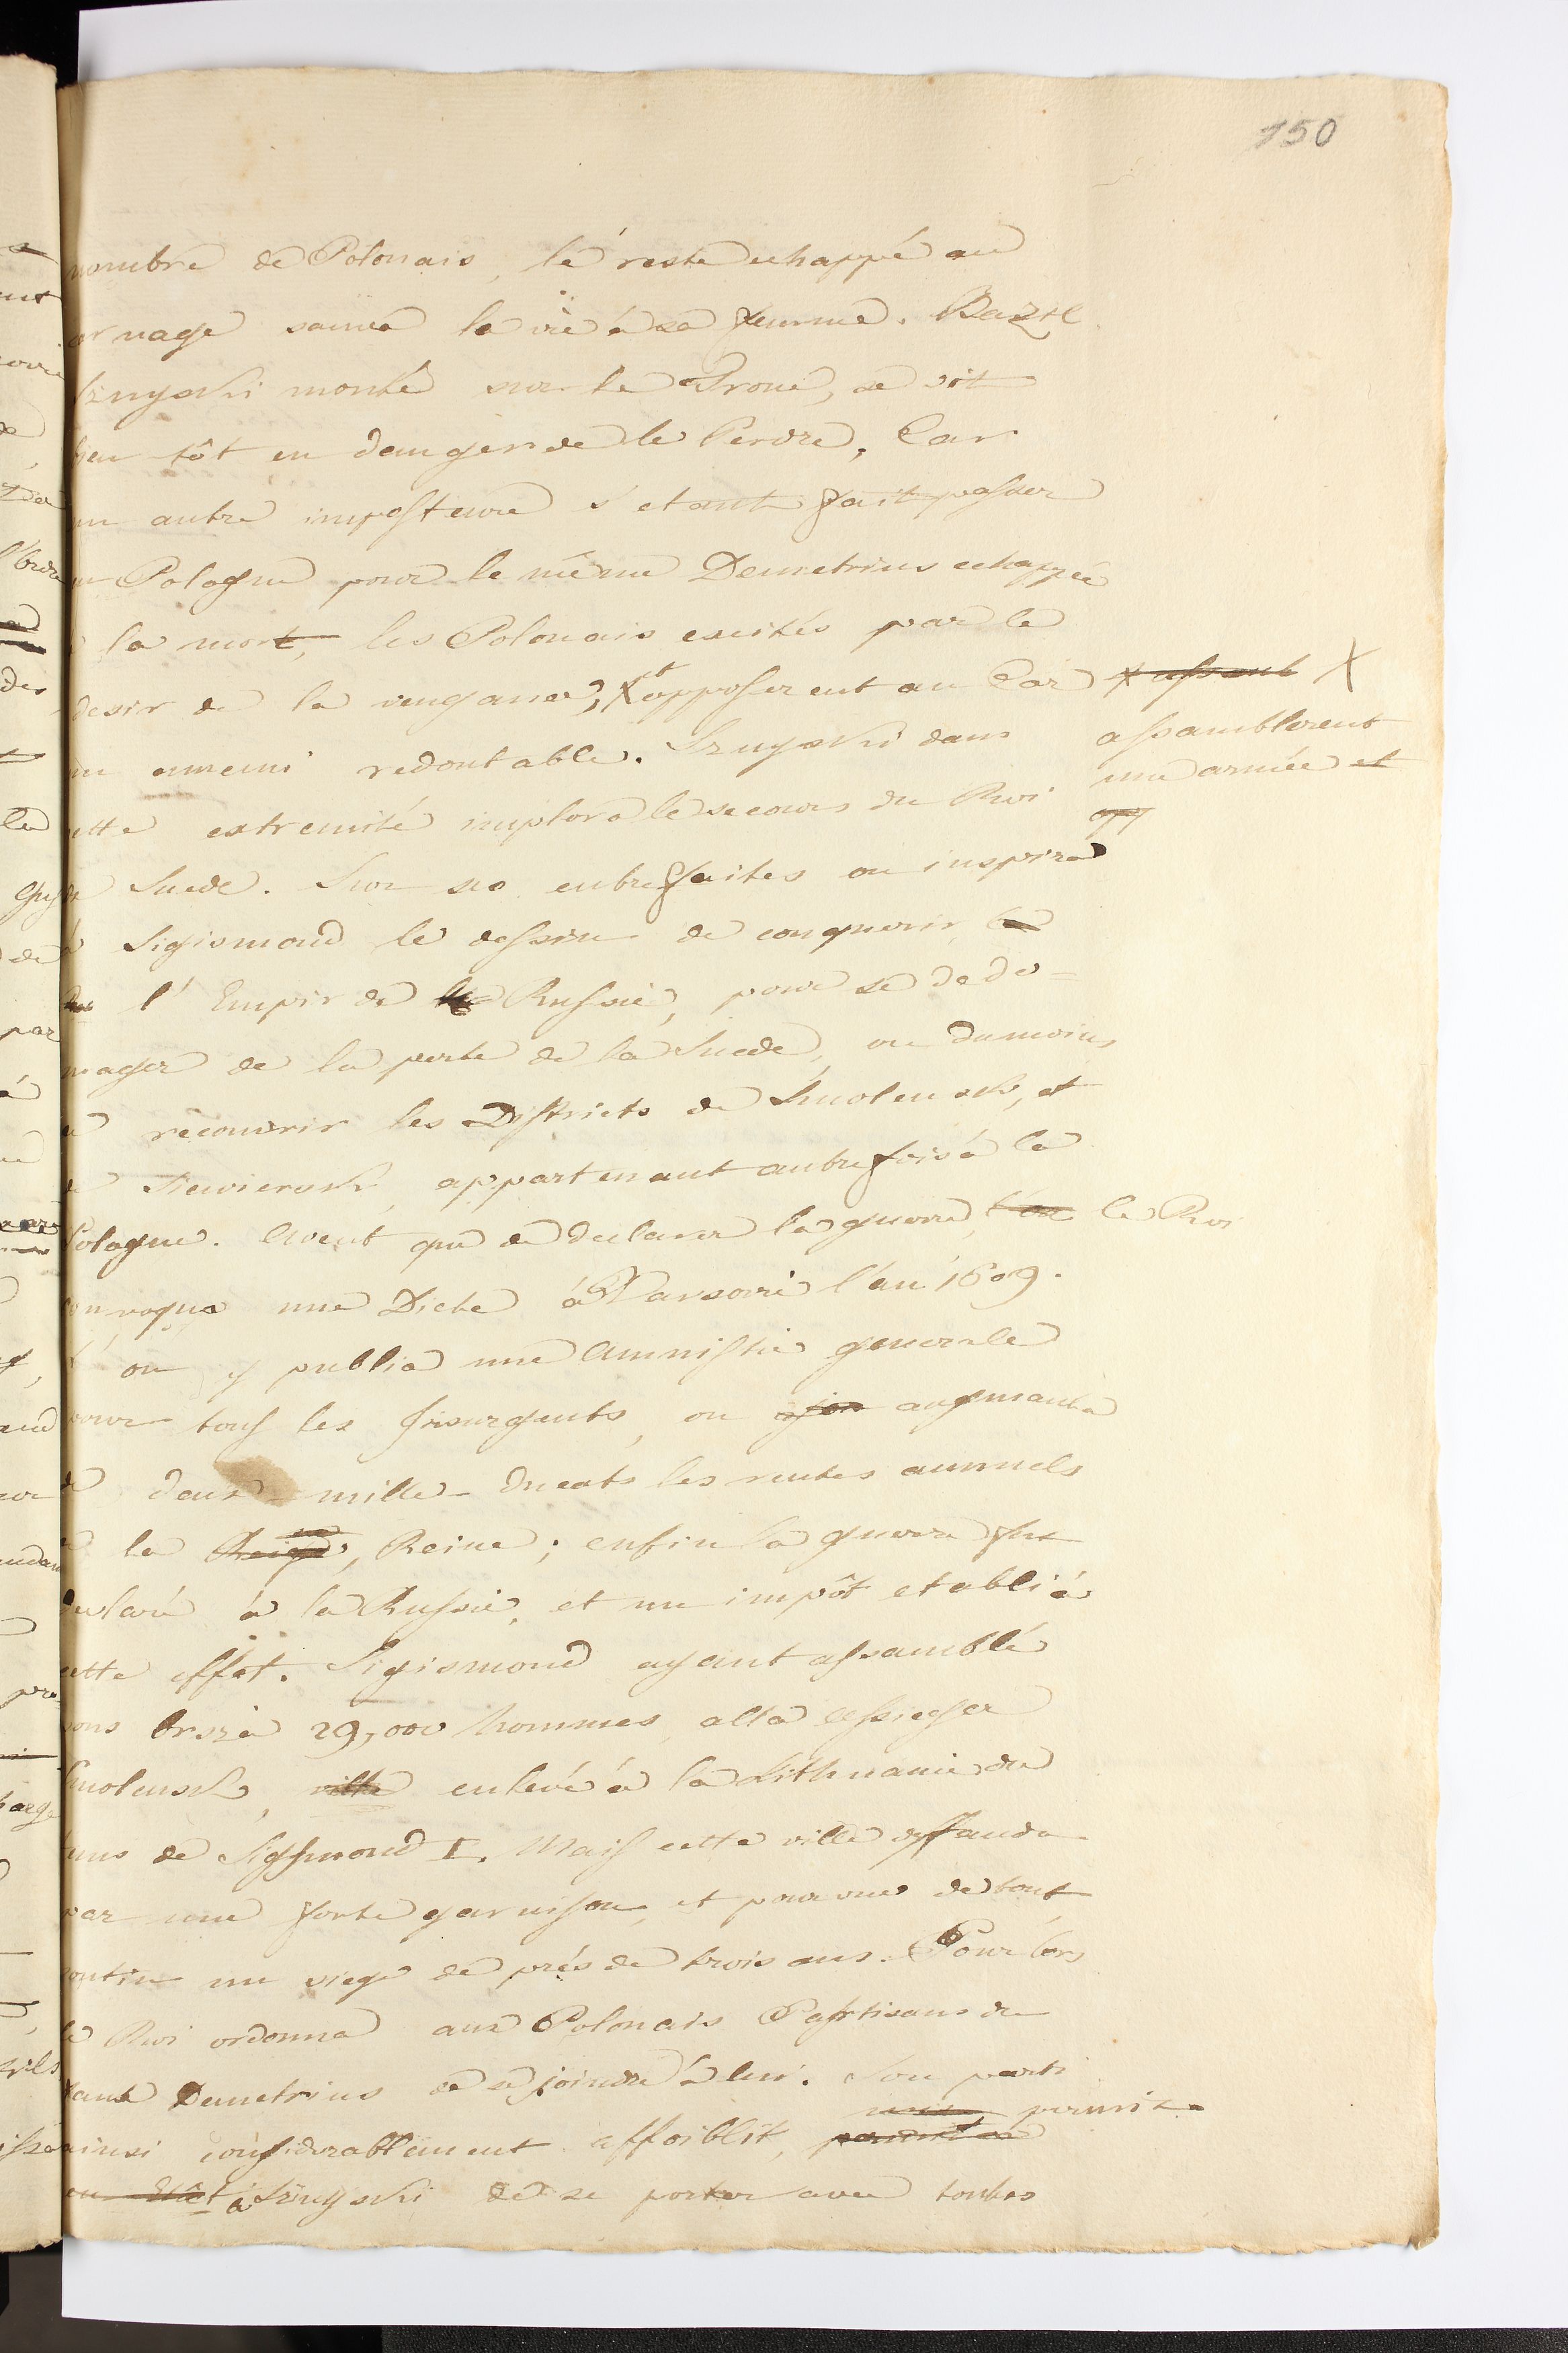 150
nombre de Polonais, le reste echappé au
arnage sauva la vie à sa femme. Bazil
Szuyski monté sur le Trone, se vit
bien tôt en danger de le Perdre, Car
un autre imposteure s'etant fait passer
en Pologne pour le même Demetrius echappée
à la mort, les Polonais exités par le
desir de la vengance, X et opposerent au Czar X
assamblerent
une armée et
un ennemi redoutable. Szuyski dans
cette extremité implora le secours du Roi
de Suede. Sur ses entrefaites on inspira
à Sigismond le dessein de conquerir
l'Empir de la Russie, pour se dedo-
mager de la perte de la Suede, ou dumoins
à recouvrir les Districts de Smolensk, et
de Siewiersk, appartenant autrefois à la
Pologne. Avant que de declarer la guerre, le Roi
convoqua une Diete à Varsovie l'an 1609.
L'on y publia une Amnistie generale
pour tous les Insurgents, on augmenta
de deux-mille-Ducats les rentes annuels
à la Reine; enfin la guerre fut
declaré à la Russie, et un impôt etabli à
cette effet. Sigismond ayant assamblé
sous Orsza 29,000 hommes, alla assieger
Smolensk, ville enlevé à la Lithuanie du
tems de Sigismond I. Mais cette ville deffandu
par une forte garnison, et pourvue de tout
soutin un siege de prés de trois ans. Pour lors
le Roi ordonna aux Polonais Partisans du
faux Demetrius de se joindre à lui. Son parti
ainsi considerablement affoiblit, permit
à Szuyski de se porter avec toutes